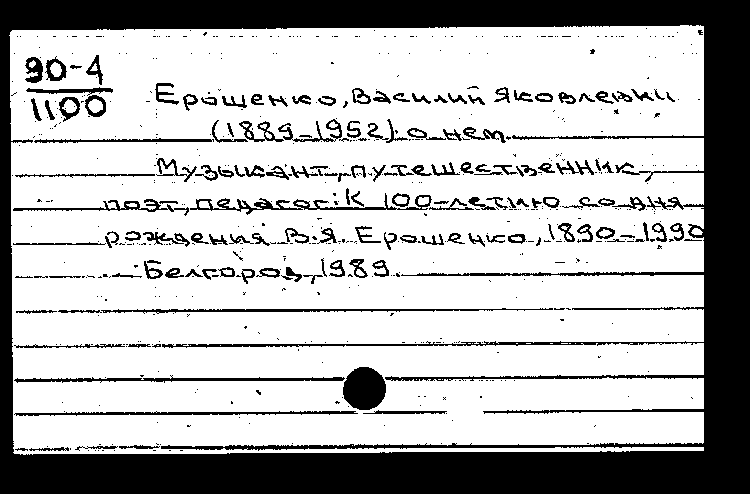 90-4
1100
Ерошенко, Василий Яковлевич
(1889-1952): о нем.
Музыкант, путешественник,
поэт, педагог: К 100-летию со дня
рождения В.Я. Ерошенко, 1890-1990
Белгород, 1989.